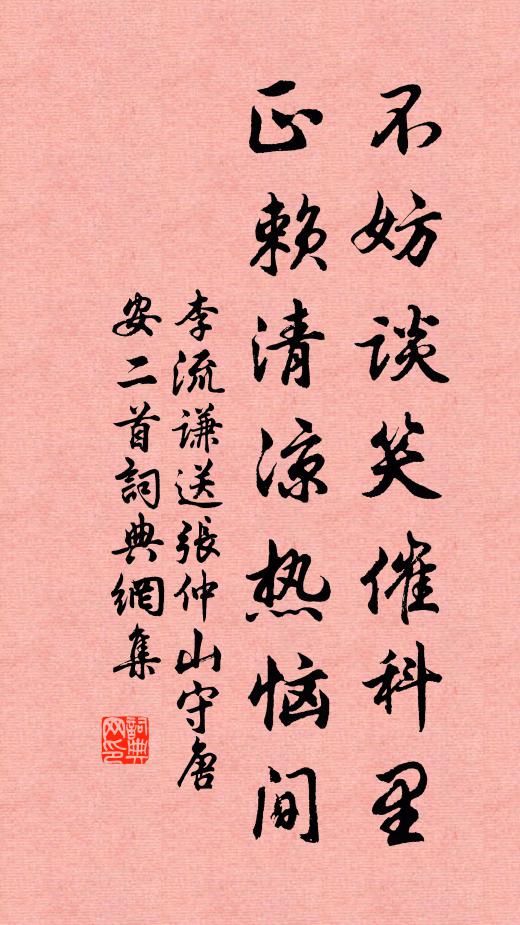 不妨谈笑催科里
正赖清凉热恼间
李流谦送張仲山守唐
安二首詞典網集
詞典网印